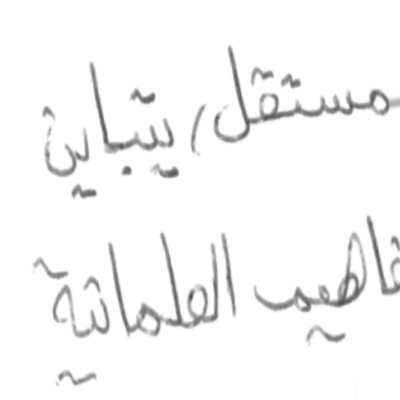 مستقل، يتباين
مفاهيم العلمانية